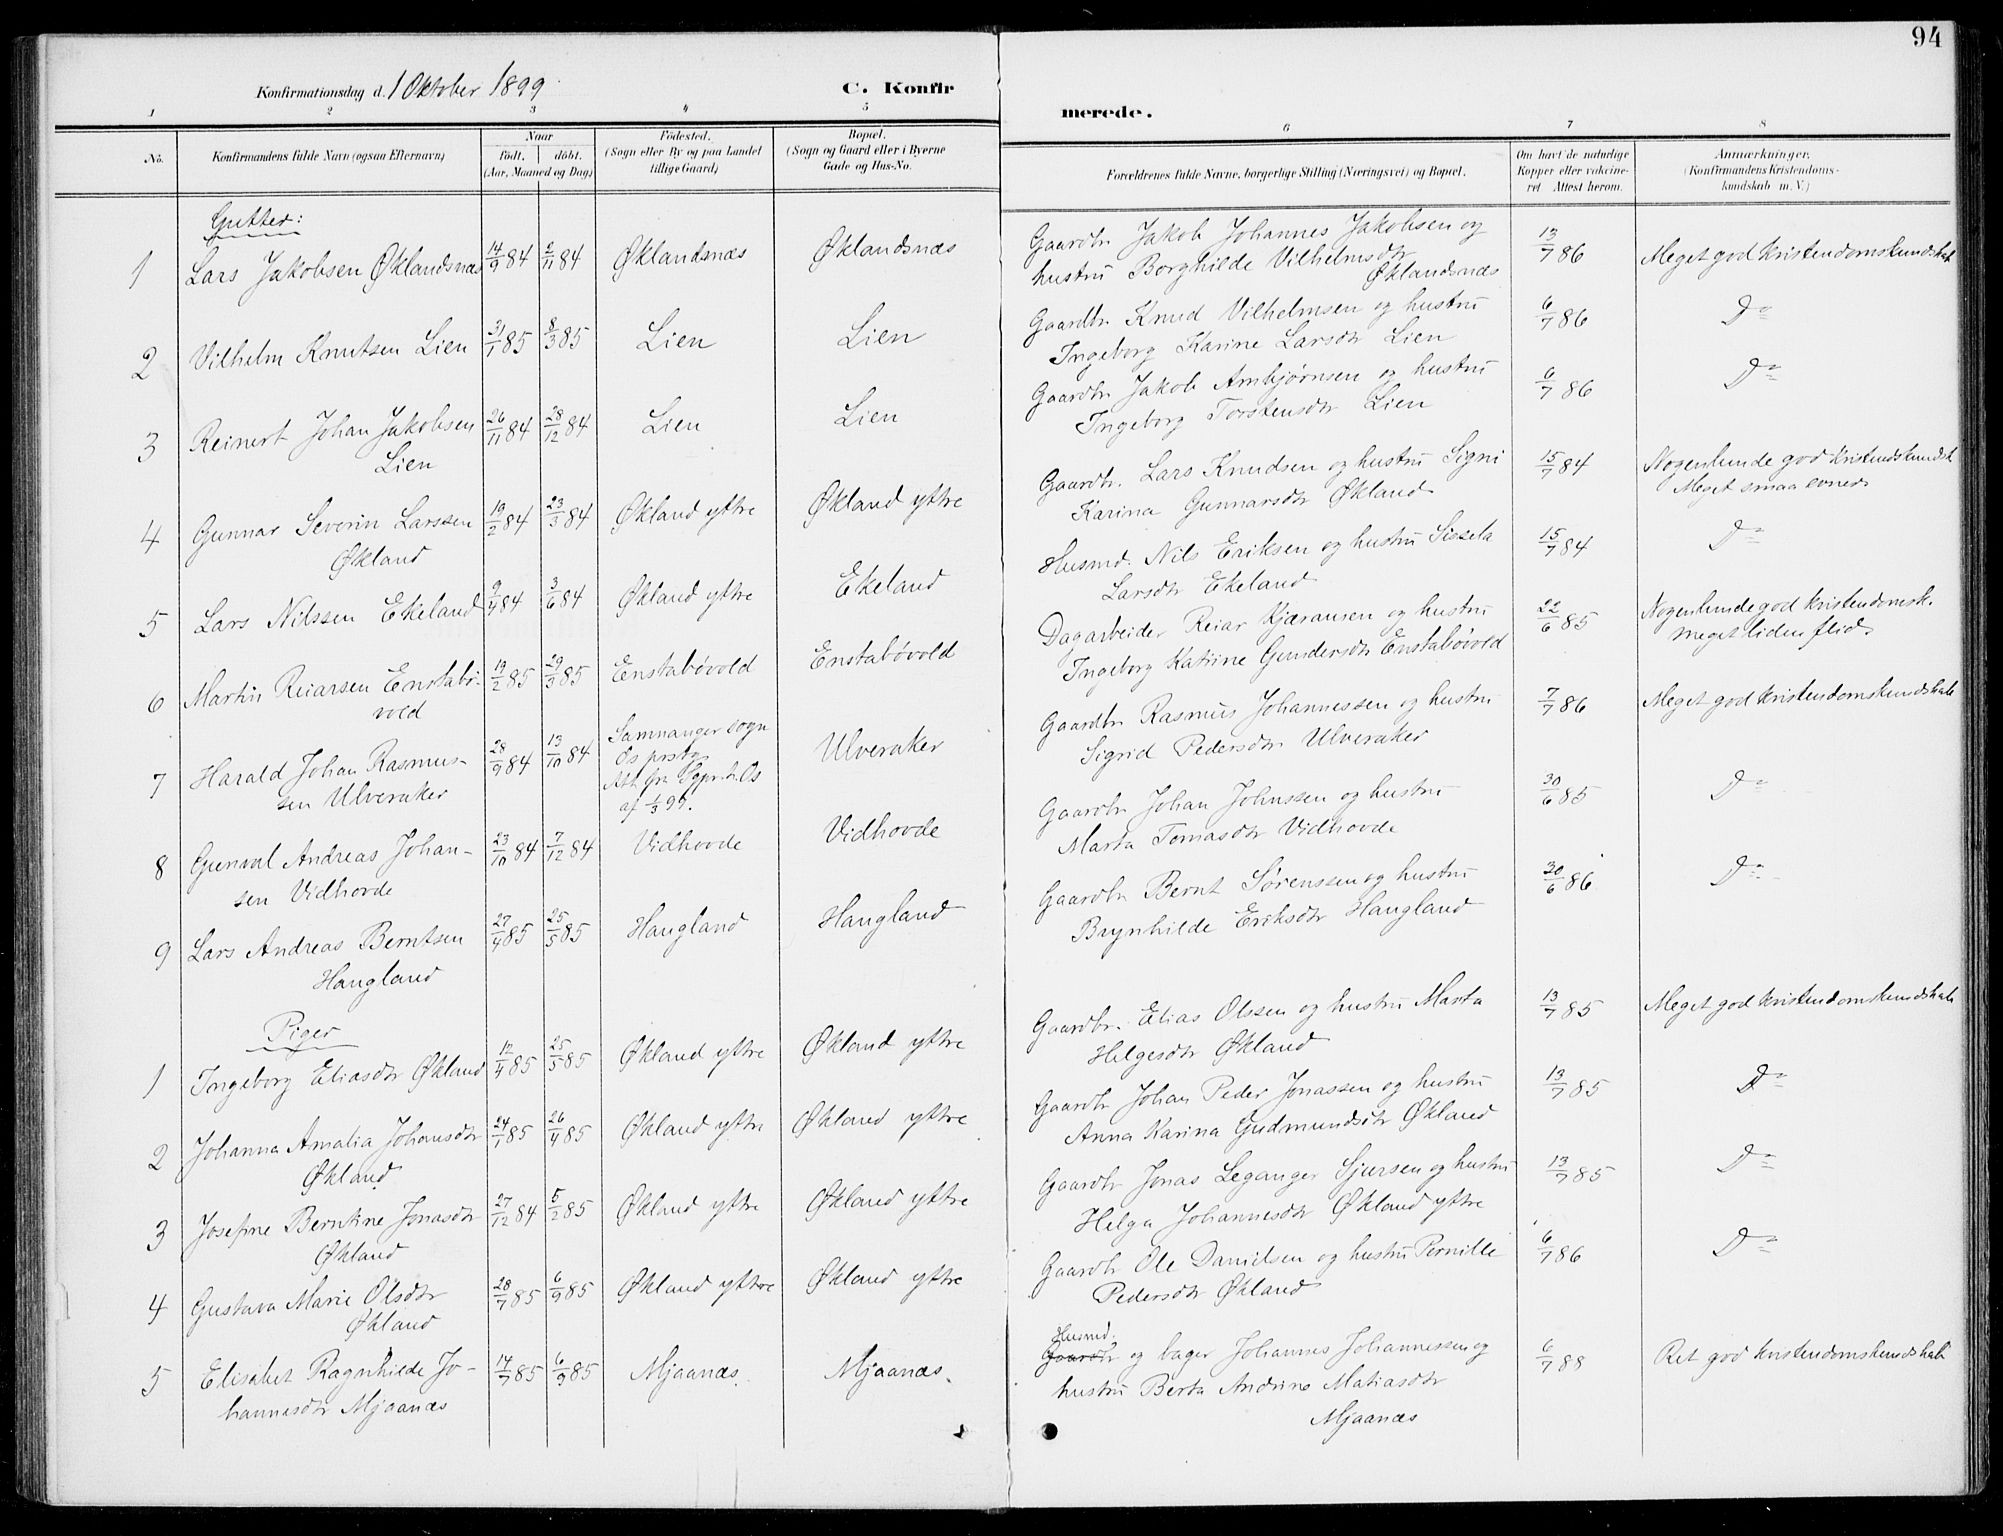 94
Konfirmationsdag d. 1 Oktober 1899
C. Konfirmerede.
1 2 3 4 5 6 7 8
No.
Konfirmandens fulde Navn (ogsaa Efternavn)
Naar
födt. döbt.
(Aar, Maaned og Dag)
Födested.
(Sogn eller By og paa Landet
tillige Gaard)
Bopæl.
(Sogn og Gaard eller i Byerne
Gade og Hus-No.
Forældrenes fulde Navne, borgerlige Stilling (Næringsvei) og Bopæl.
Om havt de naturlige
Kopper eller vakcine-
ret Attest herom.
Anmærkninger.
(Konfirmandens Kristendoms-
kundskab m. V.)
Gutter:
1 Lars Jakobsen Øklandsnæs 14/9 84 2/11 84 Øklandsnæs Øklandsnæs Gaardbr Jakob Johannes Jakobsen og 13/7 86 Meget god Kristendomskundskab
hustru Borghilde Vilhelmsdtr
Øklandsnæs
2 Vilhelm Knutsen Lien 31/1 85 8/3 85 Lien Lien Gaardbr. Knud Vilhelmsen og hustru 6/7 86 Do
Ingeborg Karine Larsdtr Lien
3 Reinert Johan Jakobsen 26/11 84 28/12 84 Lien Lien Gaardbr Jakob Arnbjørnsen og hustru 6/7 86 Do
Lien Ingeborg Torstensdtr Lien
4 Gunnar Severin Larssen 19/2 84 23/3 84 Økland yttre Økland yttre Gaardbr. Lars Knudsen og hustru Signi 15/7 84 Nogenlunde god Kristendskundsk
Økland Karina Gunnarsdtr Økland Meget smaa evner
5 Lars Nilssen Ekeland 9/4 84 3/6 84 Økland yttre Ekeland Husmd. Nils Eriksen og hustru Sissela 15/7 84 Do
Larsdtr Ekeland
6 Martin Reiarsen Enstabø- 19/2 85 29/3 85 Enstabøvold Enstabøvold Dagarbeider Reiar Kjæransen og hustru 22/6 85 Nogenlunde god Kristendomsk.
vold Ingeborg Katrine Gundersdtr Enstabøvold meget liden flid
7 Harald Johan Rasmus- 28/9 84 13/10 84 Samnanger sogn Ulveraker Gaardbr Rasmus Johannessen og hustru 7/7 86 Meget god Kristendomskundskab
sen Ulveraker Os prstg Sigrid Pedersdtr Ulveraker
Att fra Sgpr. t. Os
af 1/3 99.
8 Gunval Andreas Johan- 23/10 84 7/12 84 Vidhovde Vidhovde Gaardbr Johan Johnssen og hustru 30/6 85 Do
sen Vidhovde Marta Tomasdtr Vidhovde
9 Lars Andreas Berntsen 27/4 85 25/5 85 Haugland Haugland Gaardbr Bernt Sørenssen og hustru 30/6 86 Do
Haugland Brynhilde Eriksdtr Haugland
Piger
1 Ingeborg Eliasdtr Økland 12/4 85 25/5 85 Økland yttre Økland yttre Gaardbr. Elias Olssen og hustru Marta 13/7 85 Meget god Kristendomskundskab
Helgesdtr Økland
2 Johanna Amalia Johansdtr 24/1 85 26/4 85 Økland yttre Økland yttre Gaardbr Johan Peder Jonassen og hustru 13/7 85 Do
Økland Anna Karina Gudmundsdtr Økland
3 Josefine Berntine Jonasdtr 27/12 84 5/2 85 Økland yttre Økland yttre Gaardbr Jonas Leganger Sjursen og hustru 13/7 85 Do
Økland Helga Johannesdtr Økland yttre
4 Gustava Marie Olsdtr 28/7 85 6/9 85 Økland yttre Økland yttre Gaardbr Ole Danielsen og hustru Pernille 6/7 86 Do
Økland Pedersdtr Økland
Husmd.
5 Elisabet Ragnhilde Jo- 14/7 85 6/9 85 Mjaanæs Mjaanæs. Gaardbr og bager Johannes Johannessen og 6/7 88 Ret god Kristendomskundskab
hannesdtr Mjaanæs hustru Berta Andrine Matiasdtr
Mjaanæs